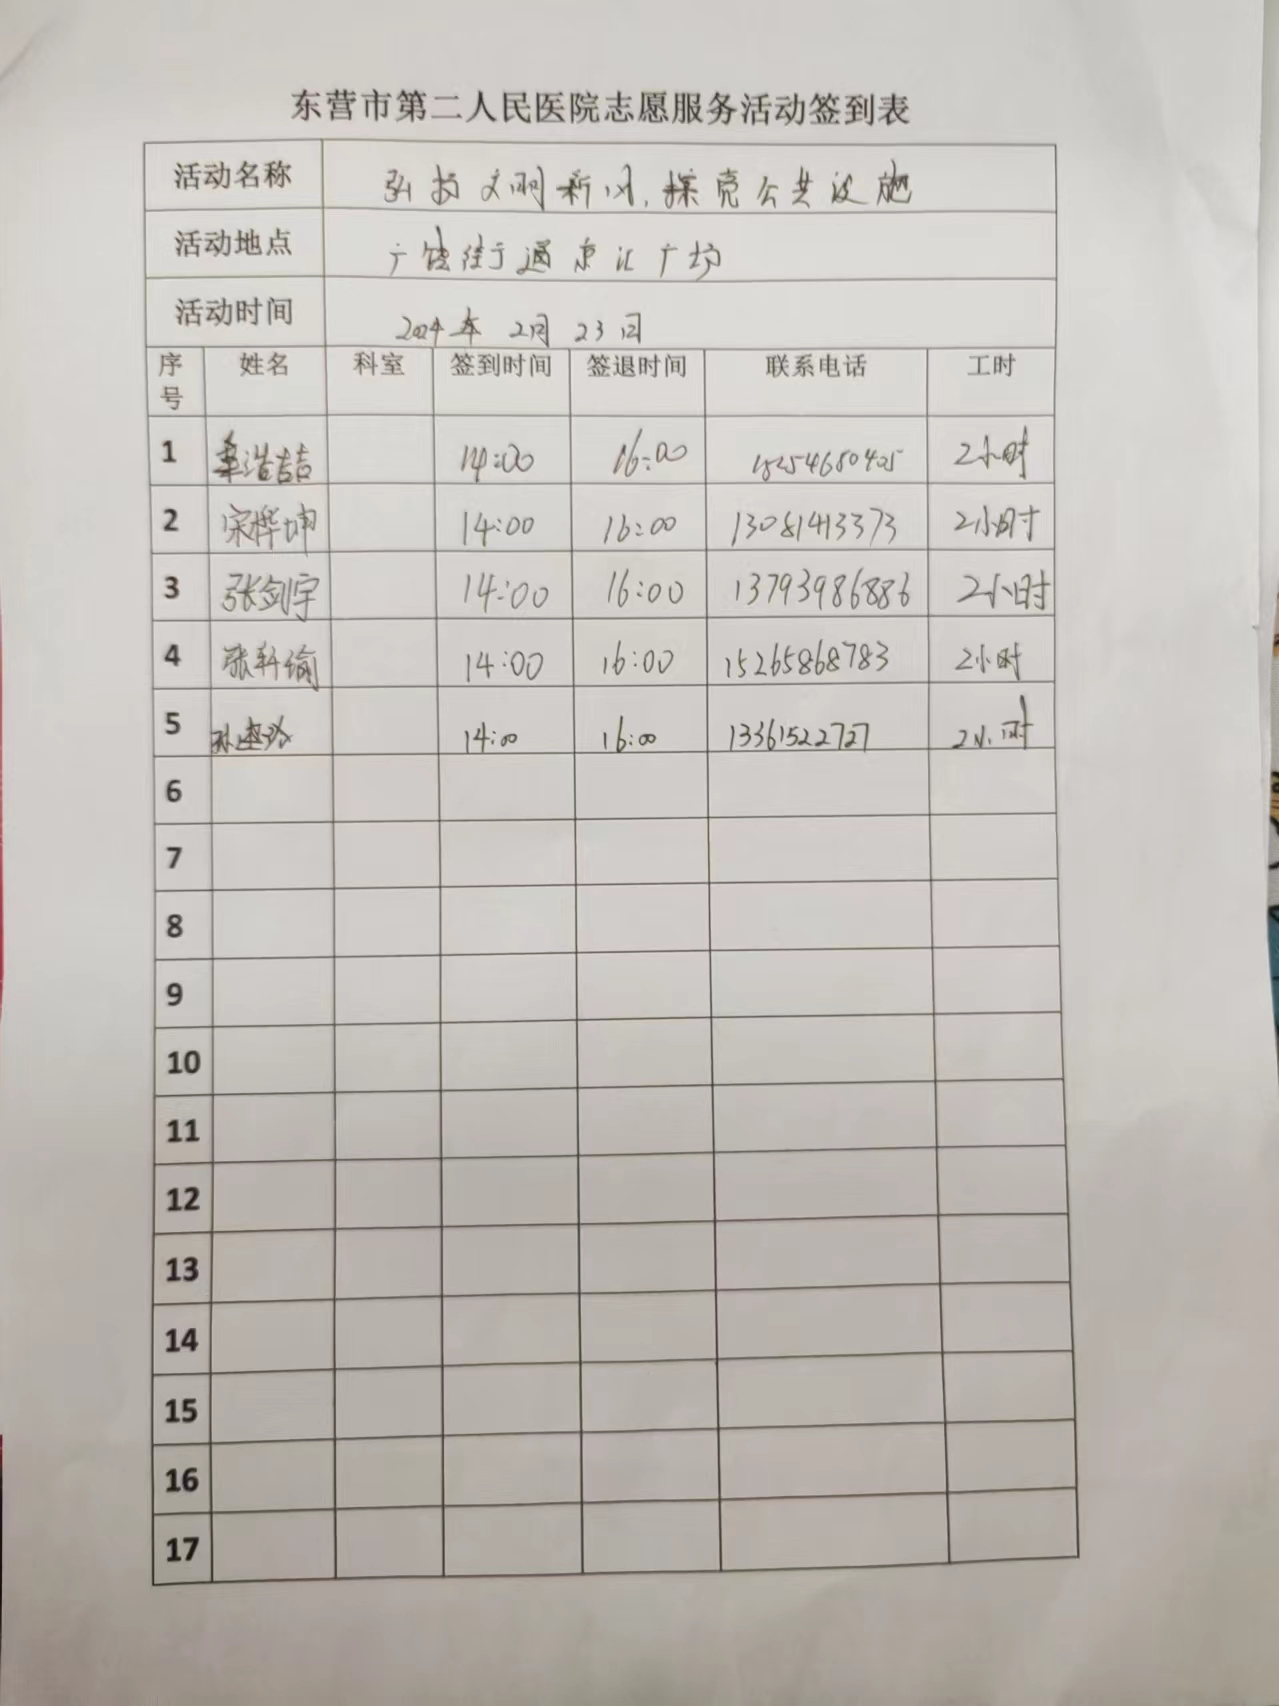 东营市第二人民医院志愿服务活动签到表
活动名称 弘扬文明新风,探究公共设施
活动地点 广饶街道通东汇广场
活动时间 2024年2月23日
序号 姓名 科室 签到时间 签退时间 联系电话 工时
1 浩喆 14:00 16:00 2小时
2 宋桦坤 14:00 16:00 13081413373 2小时
3 张剑宇 14:00 16:00 13793986886 2小时
4 张轩瑜 14:00 16:00 15265868783 2小时
5 孙 14:00 16:00 13361522727 2小时
6
7
8
9
10
11
12
13
14
15
16
17